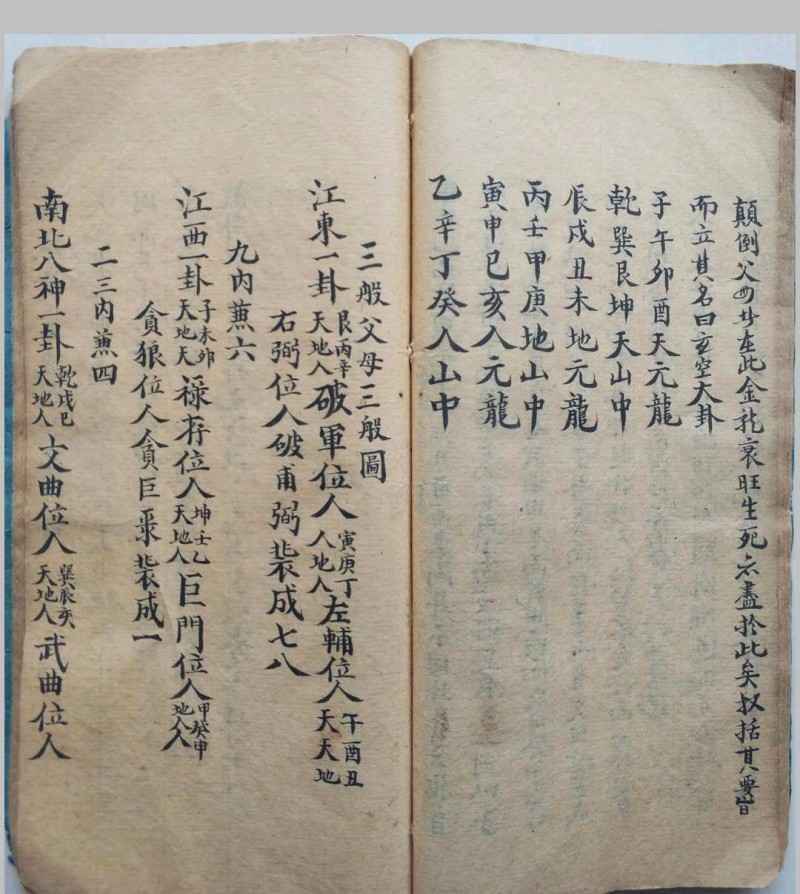 顛倒父母皆在此金龍衰旺生死亦盡於此矣叔括其要旨
而立其名曰玄空大卦
子午卯酉天元龍
乾巽艮坤天山中
辰戌丑未地元龍
丙壬甲庚地山中
寅申巳亥人元龍
乙辛丁癸人山中
三般父母三般圖
江東一卦艮丙辛天地人破軍位人寅庚丁人地人左輔位人午酉丑天天地
右弼位人破甫弼裝成七八
九內兼六
江西一卦子未卯天地天祿存位人坤壬乙天地人巨門位人甲癸申地人人
貪狼位人貪巨彔裝成一
二三內兼四
南北八神一卦乾戌巳天地人文曲位人巽辰亥天地人武曲位人